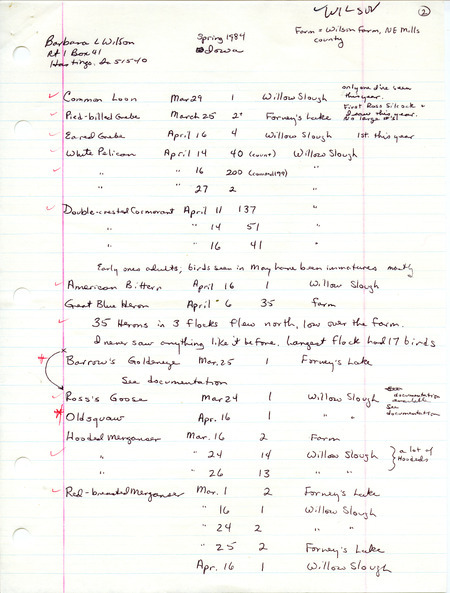 WILSON
2
Barbara L Wilson
Rt 1 Box 41
Hastings, Ia 51540
Spring 1984
Iowa
Farm = Wilson Farm, NE Mills
county
Common Loon Mar 29 1 Willow Slough only one I've seen this year.
Pied-billed Grebe March 25 2+ Forney's Lake First Ross Silcock & I saw this year. No large #s!
Eared Grebe April 16 4 Willow Slough 1st this year
White Pelican April 14 40 (count) Willow Slough
" " 16 200 (counted 199) "
" " 27 2 "
Double-crested Cormorant April 11 137 "
" " 14 51 "
" " 16 41 "
Early ones adults; birds seen in May have been immatures mostly
American Bittern April 16 1 Willow Slough
Great Blue Heron April 6 35 farm
35 Herons in 3 flocks flew north, low over the farm.
I never saw anything like it before. Largest flock had 17 birds
Barrow's Goldeneye Mar. 25 1 Forney's Lake
See documentation
Ross's Goose Mar 24 1 Willow Slough documentation available
Oldsquaw Apr. 16 1 " " See documentation
Hooded Merganser Mar. 16 2 Farm
" 24 14 Willow Slough } a lot of Hoodeds
" 26 13 " "
Red-breasted Merganser Mar. 1 2 Forney's Lake
" 16 1 Willow Slough
" 24 2 " "
" 25 2 Forney's Lake
Apr. 16 1 Willow Slough